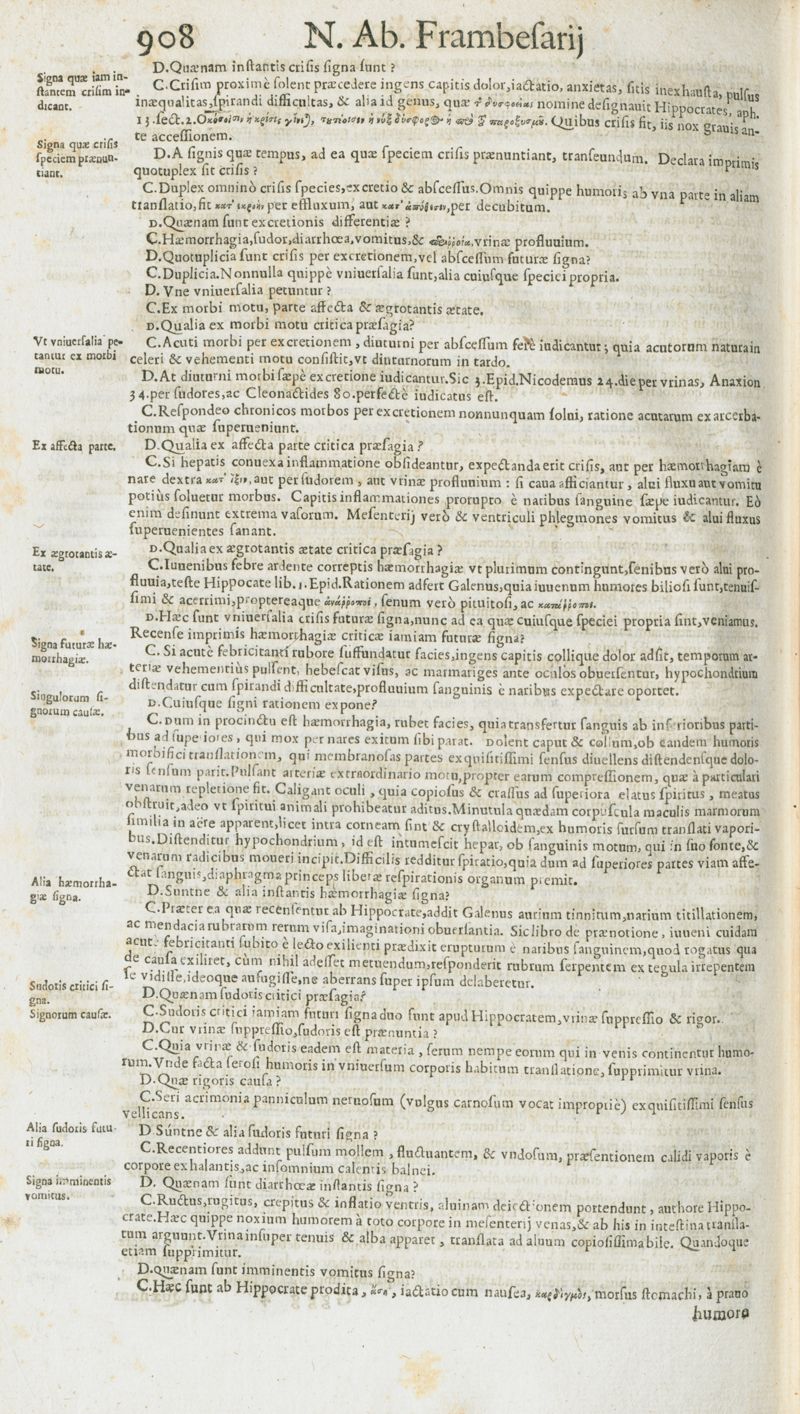 908 N. Ab. Frambeſarij
D. Quænam inſtantis criſis ſigna ſunt ?
Signa quæ iam in-
ſtantem criſim in-
dicant.
C. Criſim proximè ſolent præcedere ingens capitis dolor, iactatio, anxietas, ſitis inexhauſta, pulſus
inæqualitas, ſpirandi difficultas, & alia id genus, quæ nomine deſignauit Hippocrates, aph.
13. ſect. 2. Quibus criſis fit, iis nox grauis an-
te acceſſionem.
Signa quæ criſis
ſpeciem prænun-
tiant.
D. A ſignis quæ tempus, ad ea quæ ſpeciem criſis prænuntiant, tranſeundum. Declara imprimis
quotuplex ſit criſis ?
C. Duplex omninò criſis ſpecies, excretio & abſceſſus. Omnis quippe humoris ab vna parte in aliam
tranſlatio, fit κατ' ἔκροιω, per effluxum, aut κατ' ἀπόθεσιν, per decubitum.
D. Quænam ſunt excretionis differentiæ ?
C. Hæmorrhagia, ſudor, diarrhœa, vomitus, & vrinæ profluuium.
D. Quotuplicia ſunt criſis per excretionem, vel abſceſſum futuræ ſigna?
C. Duplicia. Nonnulla quippè vniuerſalia ſunt, alia cuiuſque ſpeciei propria.
D. Vne vniuerſalia petuntur ?
C. Ex morbi motu, parte affecta & ægrotantis ætate.
D. Qualia ex morbi motu critica præſagia?
Vt vniuerſalia pe-
tantur ex morbi
motu.
C. Acuti morbi per excretionem, diuturni per abſceſſum ferè iudicantur; quia acutorum natura in
celeri & vehementi motu conſiſtit, vt diuturnorum in tardo.
D. At diuturni morbi ſæpè excretione iudicantur. Sic 3. Epid. Nicodemus 24. die per vrinas, Anaxion
34. per ſudores, ac Cleonactides 80. perfectè iudicatus eſt.
C. Reſpondeo chronicos morbos per excretionem nonnunquam ſolui, ratione acutarum exarcerba-
tionum quæ ſuperueniunt.
Ex affecta parte.
D. Qualia ex affecta parte critica præſagia ?
C. Si hepatis conuexa inflammatione obſideantur, expectanda erit criſis, aut per hæmorrhagiam è
nare dextra κατ' ἴξιν, aut per ſudorem, aut vrinæ profluuium : ſi caua afficiantur, alui fluxu aut vomitu
potiùs ſoluetur morbus. Capitis inflammationes prorupto è naribus ſanguine ſæpe iudicantur. Eò
enim deſinunt extrema vaſorum. Meſenterij verò & ventriculi phlegmones vomitus & alui fluxus
ſuperuenientes ſanant.
Ex ægrotantis æ-
tate.
D. Qualia ex ægrotantis ætate critica præſagia ?
C. Iuuenibus febre ardente correptis hæmorrhagiæ vt plurimum contingunt, ſenibus verò alui pro-
fluuia, teſte Hippocate lib. 1. Epid. Rationem adfert Galenus, quia iuuenum humores bilioſi ſunt, tenuiſ-
ſimi & acerrimi, proptereaque ἀνάῤῥοποι, ſenum verò pituitoſi, ac κατάῤῥοποι.
D. Hæc ſunt vniuerſalia criſis futuræ ſigna, nunc ad ea quæ cuiuſque ſpeciei propria ſint, veniamus.
Recenſe imprimis hæmorrhagiæ criticæ iamiam futuræ ſigna?
Signa futuræ hæ-
morrhagiæ.
C. Si acutè febricitanti rubore ſuffundatur facies, ingens capitis collique dolor adſit, temporum ar-
teriæ vehementiùs pulſent, hebeſcat viſus, ac marmariges ante oculos obuerſentur, hypochondrium
diſtendatur cum ſpirandi difficultate, profluuium ſanguinis è naribus expectare oportet.
Singulorum ſi-
gnorum cauſæ.
D. Cuiuſque ſigni rationem expone?
C. Dum in procinctu eſt hæmorrhagia, rubet facies, quia transfertur ſanguis ab inferioribus parti-
bus ad ſuperiores, qui mox per nares exitum ſibi parat. Dolent caput & collum, ob eandem humoris
morbifici tranſlationem, qui membranoſas partes exquiſitiſſimi ſenſus diuellens diſtendenſque dolo-
ris ſenſum parit. Pulſant arteriæ extraordinario motu, propter earum compreſſionem, quæ à particulari
venarum repletione fit. Caligant oculi, quia copioſus & craſſus ad ſuperiora elatus ſpiritus, meatus
obſtruit, adeo vt ſpiritui animali prohibeatur aditus. Minutula quædam corpuſcula maculis marmorum
ſimilia in aëre apparent, licet intra corneam ſint & cryſtalloidem, ex humoris ſurſum tranſlati vapori-
bus. Diſtenditur hypochondrium, id eſt intumeſcit hepar, ob ſanguinis motum, qui in ſuo fonte, &
venarum radicibus moueri incipit. Difficilis redditur ſpiratio, quia dum ad ſuperiores partes viam affe-
ctat ſanguis, diaphragma princeps liberæ reſpirationis organum premit.
Alia hæmorrha-
giæ ſigna.
D. Suntne & alia inſtantis hæmorrhagiæ ſigna?
C. Præter ea quæ recenſentur ab Hippocrate, addit Galenus aurium tinnitum, narium titillationem,
ac mendacia rubrarum rerum viſa, imaginationi obuerſantia. Sic libro de prænotione, iuueni cuidam
acutè febricitanti ſubito è lecto exilienti prædixit erupturum è naribus ſanguinem, quod rogatus qua
de cauſa exiliret, cùm nihil adeſſet metuendum, reſponderit rubrum ſerpentem ex tegula irrepentem
ſe vidiſſe, ideoque aufugiſſe, ne aberrans ſuper ipſum delaberetur.
Sudoris critici ſi-
gna.
D. Quænam ſudoris critici præſagia?
Signorum cauſæ.
C. Sudoris critici iamiam futuri ſigna duo ſunt apud Hippocratem, vrinæ ſuppreſſio & rigor.
D. Cur vrinæ ſuppreſſio, ſudoris eſt prænuntia ?
C. Quia vrinæ & ſudoris eadem eſt materia, ſerum nempe eorum qui in venis continentur humo-
rum. Vnde facta ſeroſi humoris in vniuerſum corporis habitum tranſlatione, ſupprimitur vrina.
D. Quæ rigoris cauſa ?
C. Seri acrimonia panniculum neruoſum (vulgus carnoſum vocat impropriè) exquiſitiſſimi ſenſus
vellicans.
Alia ſudoris futu-
ri ſigna.
D Súntne & alia ſudoris futuri ſigna ?
C. Recentiores addunt pulſum mollem, fluctuantem, & vndoſum, præſentionem calidi vaporis è
corpore exhalantis, ac inſomnium calentis balnei.
Signa imminentis
vomitus.
D. Quænam ſunt diarrhœæ inſtantis ſigna ?
C. Ructus, rugitus, crepitus & inflatio ventris, aluinam deiectionem portendunt, authore Hippo-
crate. Hæc quippe noxium humorem à toto corpore in meſenterij venas, & ab his in inteſtina tranſla-
tum arguunt. Vrina inſuper tenuis & alba apparet, tranſlata ad aluum copioſiſſima bile. Quandoque
etiam ſupprimitur.
D. Quænam ſunt imminentis vomitus ſigna?
C. Hæc ſunt ab Hippocrate prodita, iactatio cum nauſea, καρδιγμὸς, morſus ſtomachi, à prauo
humore